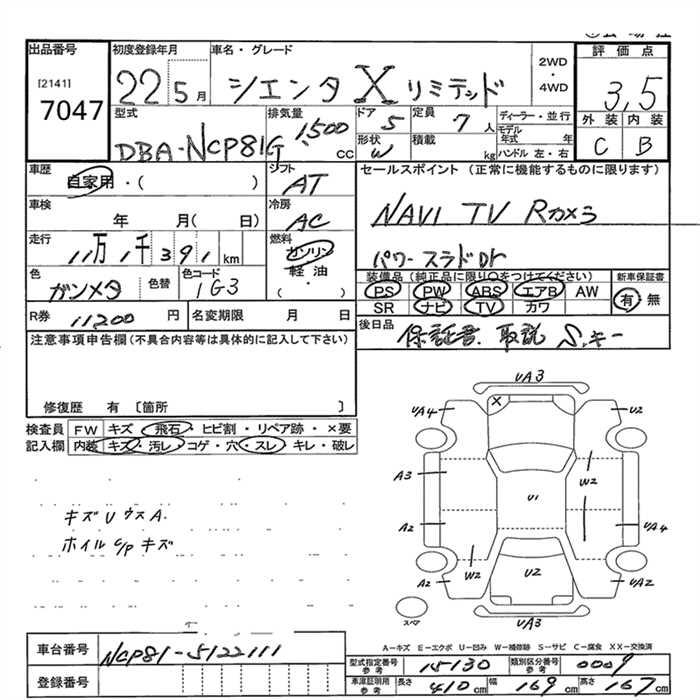 出品番号
[2141]
7047
初度登録年月
22 5月
車名・グレード
シエンタ X リミテッド
2WD
・
4WD
評価点
3,5
外装 内装
C B
型式
DBA-NCP81G
排気量
1500 CC
ドア
5
形状
W
定員
7人
積載
kg
ディーラー・並行
モデル年式 年
ハンドル 左・右
車歴
自家用・( )
シフト
AT
セールスポイント (正常に機能するものに限ります)
NAVI TV Rカメラ
パワースラドDr
車検
年 月( 日)
冷房
AC
走行
11万1千391 km
燃料
ガソリン
軽油
( ・ )
色
ガンメタ
色替
色コード
1G3
装備品 (純正品に限り○をつけてください)
PS PW ABS エアB AW
SR ナビ TV カワ
新車保証書
有・無
R券 11200 円
名変期限 月 日
後日品
保証書 取説 S.キー
注意事項申告欄(不具合内容等は具体的に記入して下さい)
修復歴 有 〔箇所 〕
検査員記入欄
FW キズ・飛石・ヒビ割・リペア跡・×要
内装 キズ・汚レ・コゲ・穴・スレ・キレ・破レ
キズU ウスA.
ホイルC/Pキズ
UA3
UA4
U2
A3
W2
U1
A2
UA4
A2
W2
U2
UA2
UA3
スペア
A-キズ E-エクボ U-凹み W-補修跡 S-サビ C-腐食 XX-交換済
車台番号
NCP81-5122111
登録番号
型式指定番号 参考
15130
類別区分番号 参考
0009
車庫証明用 参考
長さ 410cm 幅 169cm 高さ 167cm